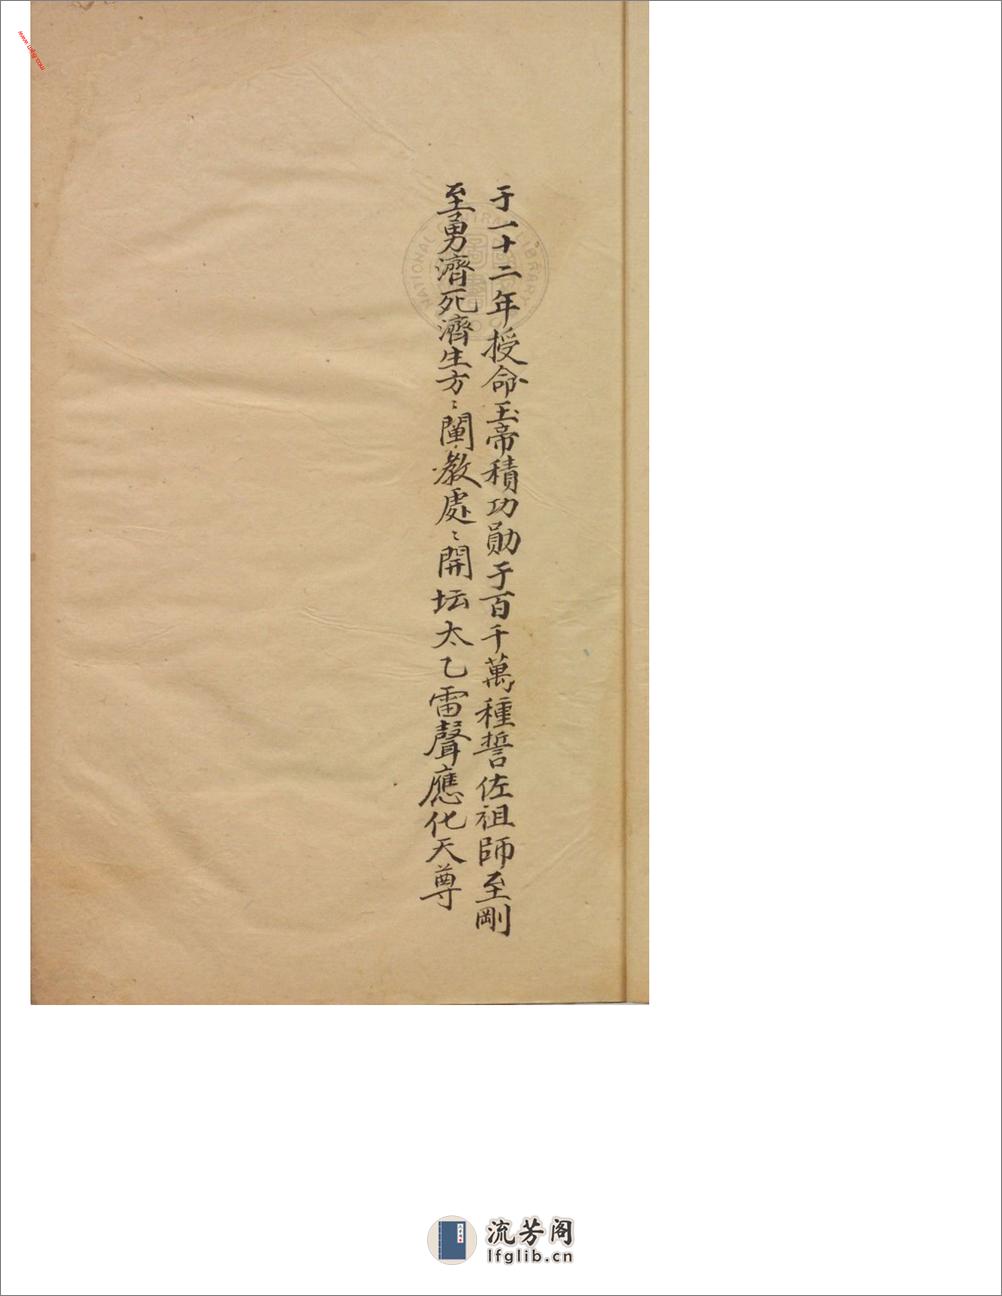 于一十二年授命玉帝積功勛于百千萬種誓佐祖師至剛
至勇濟死濟生方〻闡教處〻開坛太乙雷聲應化天尊
NATIONAL CENTRAL LIBRARY
流芳阁
lfglib.cn